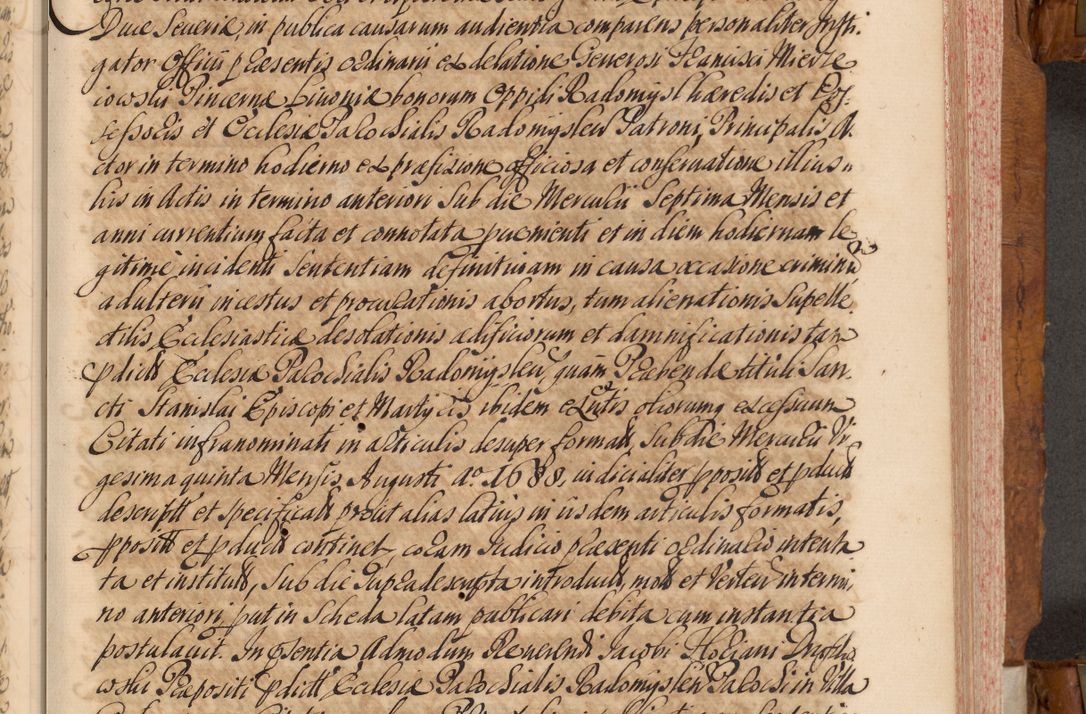 Duce Severiæ, in publica causarum audientia comparens personaliter Insti,
gator Officii præsentis ordinarii ex delatione Generosi Stanislai Mierze
iowski Pincernæ Livoniæ bonorum Oppidi Radomysl hæredis et Pos,
sessoris et Ecclesiæ Parochialis Radomyslen Patroni, Principalis A,
ctor in termino hodierno ex præfixione officiosa et conservatione illius,,
his in Actis in termino anteriori Sub die Mercurii Septima Mensis et
anni currentium facta et connotata provenienti et in diem hodiernam le
gitimè incidenti Sententiam definitivam in causa occasione criminū
adulterii incestus et procurationis abortus, tum alienationis Supelle
ctilis Ecclesiasticæ desolationis ædificiorum et damnificationis tam
pdictæ Ecclesiæ Parochialis Radomyslen quàm Præbendæ tituli San,
cti Stanislai Episcopi et Martyris ibidem extntis aliorumq excessuum
Citati infranominati in articulis desuper format, Sub die Mercurii Vi
gesima quinta Mensis Augusti Ao 1688, iudicialiter pposit et pduct
descript et specificat prout alias latius in iisdem articulis formatis,
pposit et pduct continet coram Iudicio præsenti ordinario intenta
ta et institut, Sub die Supradescripta introduct, mot et Verten in termi,
no anteriori, put in Scheda latam publicari debita cum instantia
postulavit. In psentia Admodum Reverendi Iacobi Floriani
wski Præpositi pdictæ Ecclesiæ Parochialis Radomyslen Parochi in Villa